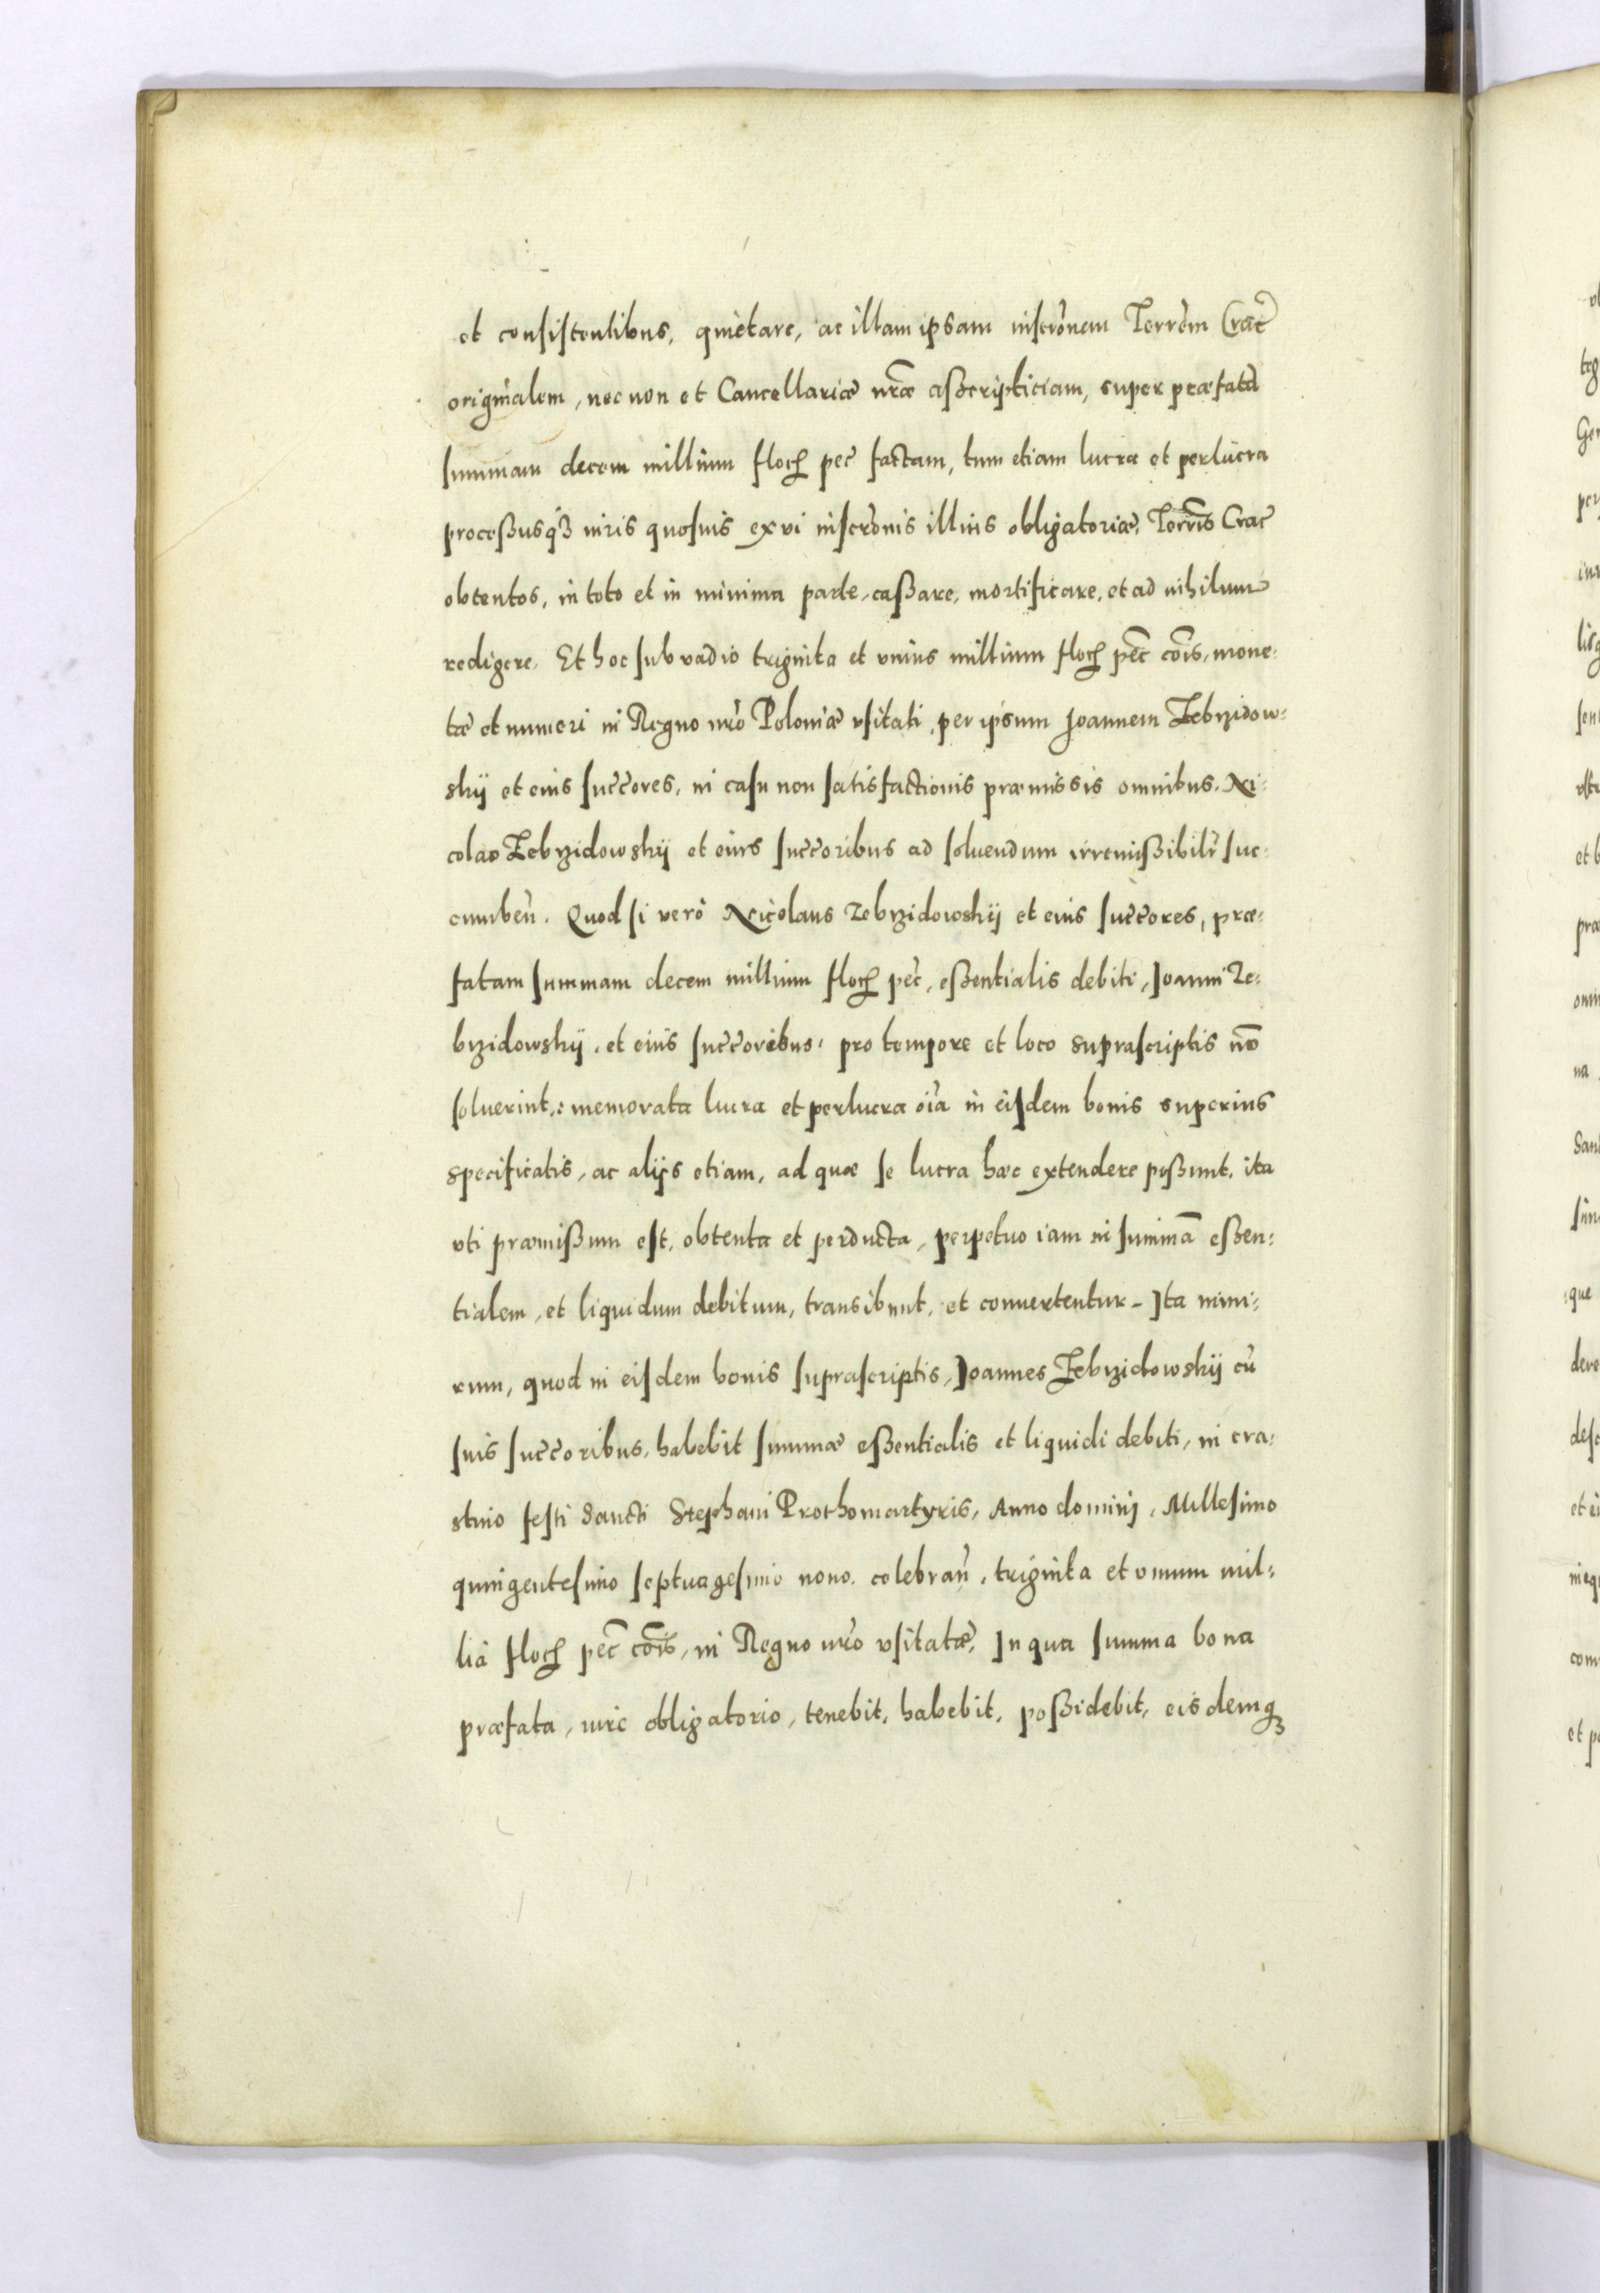 et consistentibus, quietare, ac illam ipsam inscrõnem Terrẽm Crac̃
originalem, nec non et Cancellariæ nr̃æ asscripticiam, super præfatã
summam decem millium floꝝ pec̃ factam, tum etiam lucra et perlucra
processusq̃ꝫ iuris quosuis ex vi inscrõnis illius obligatoriæ, Terrĩs Crac̃
obtentos, in toto et in minima parte, cassare, mortificare, et ad nihilum
redigere. Et hoc sub vadio triginta et vnius millium floꝝ pec̃ cõis, mone:
tæ et numeri in Regno nr̃o Poloniæ vsitati, per ipsum Joannem Zebrzidow:
skij et eius succ̃ores, in casu non satisfactionis præmissis omnibus, Ni:
colao Zebrzidowskij et eius succ̃oribus ad soluendum irremissibilr̃ suc:
cumbeñ. Quod si verò Nicolaus Zebrzidowskij et eius succ̃ores, præ:
fatam summam decem millium floꝝ pec̃, essentialis debiti, Joanni Ze:
brzidowskij, et eius succ̃oribus, pro tempore et loco suprascriptis nõ
soluerint,: memorata lucra et perlucra oĩa in eisdem bonis superius
specificatis, ac alijs etiam, ad quæ se lucra hæc extendere possunt, ita
vti præmissum est, obtenta et perducta, perpetuo iam in summã essen:
tialem, et liquidum debitum, transibunt, et conuertentur. Ita nimi:
rum, quod in eisdem bonis suprascriptis, Joannes Zebrzidowskij cũ
suis succ̃oribus, habebit summæ essentialis et liquidi debiti, in cra:
stino festi Sancti Stephani Prothomartyris, Anno domini, Millesimo
quingentesimo septuagesimo nono, celebrañ, triginta et vnum mil:
lia floꝝ pec̃ cõis, in Regno nr̃o vsitatæ, In qua summa bona
præfata, iure obligatorio, tenebit, habebit, possidebit, eisdemqꝫ